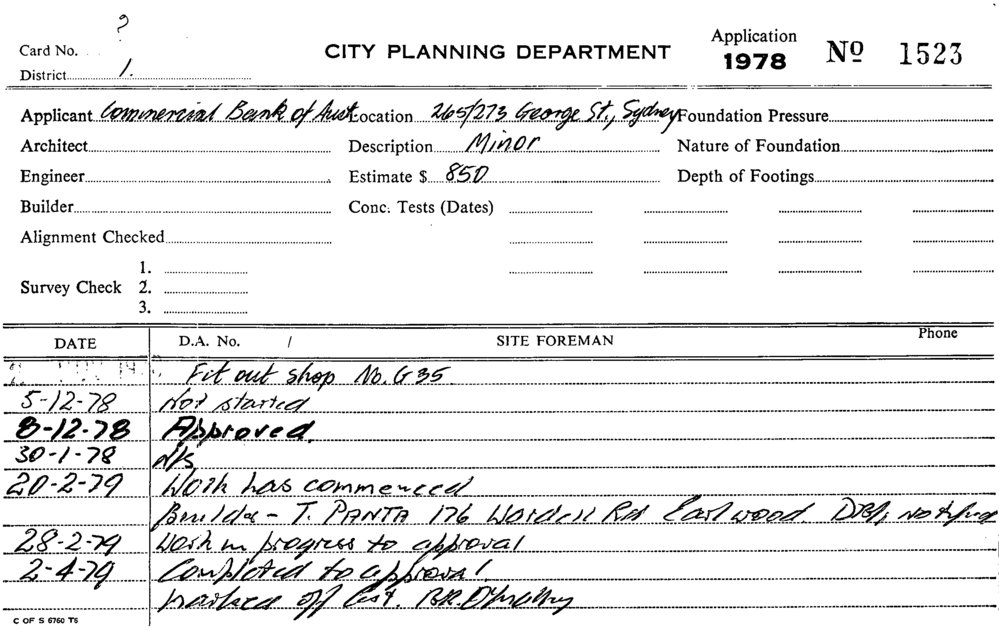 ?
Card No.
District 1.
CITY PLANNING DEPARTMENT
Application
1978
No 1523
Applicant Commercial Bank of Aust Location 265/273 George St., Sydney Foundation Pressure
Architect Description Minor Nature of Foundation
Engineer Estimate $ 850 Depth of Footings
Builder Conc. Tests (Dates)
Alignment Checked
1.
Survey Check 2.
3.
DATE D.A. No. / SITE FOREMAN Phone
Fit out shop No. G35
5-12-78 Not started
8-12-78 Approved.
30-1-78 N/S
20-2-79 Work has commenced
Builder - T. PANTA 176 Wardell Rd Earlwood. notified
28-2-79 Work in progress to approval
2-4-79 Completed to approval.
marked off
C OF S 6760 T6